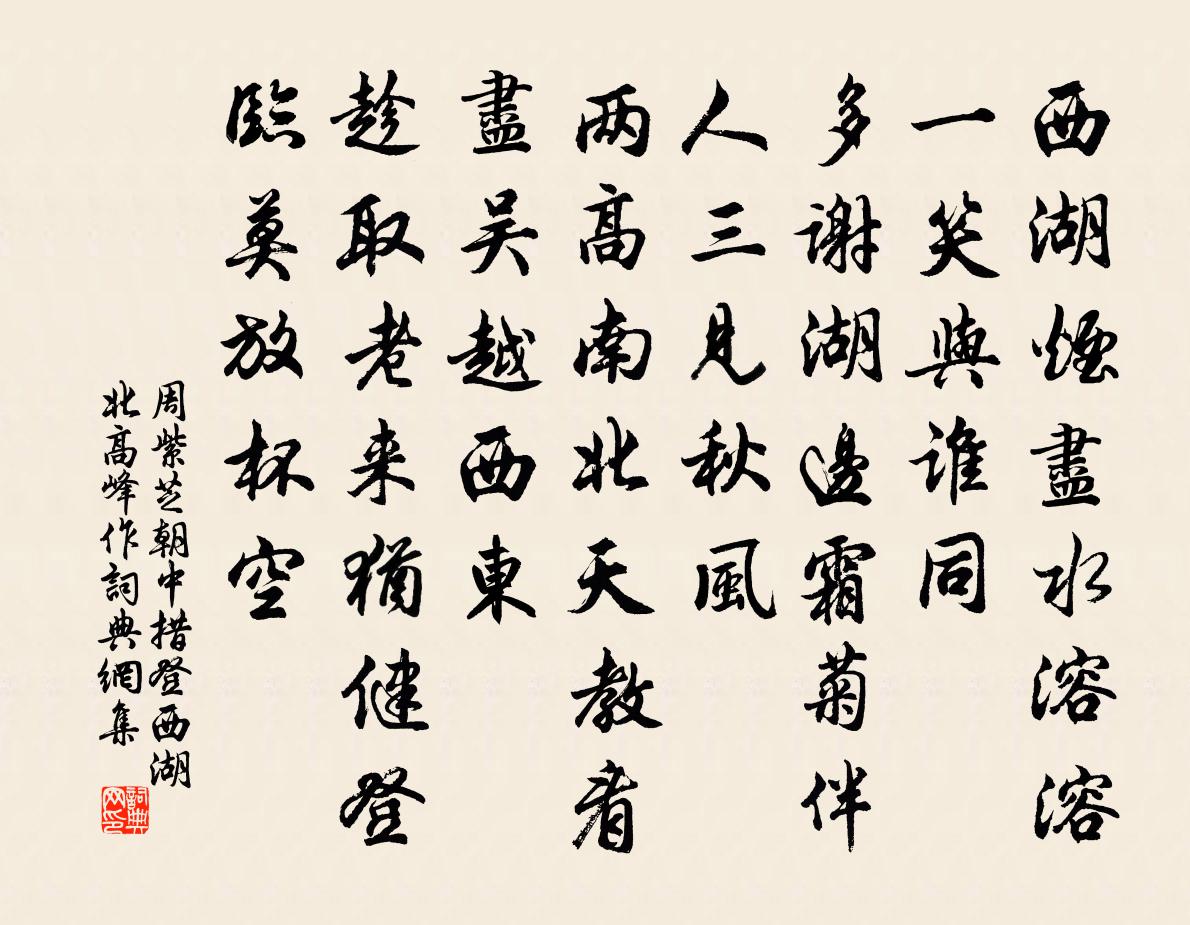 西湖煙盡水溶溶
一笑與誰同
多謝湖邊霜菊伴
人三見秋風
两高南北天教看
盡吳越西東
趁取老来猶健登
臨莫放杯空
周紫芝朝中措登西湖
北高峰作詞典網集
詞典
网印